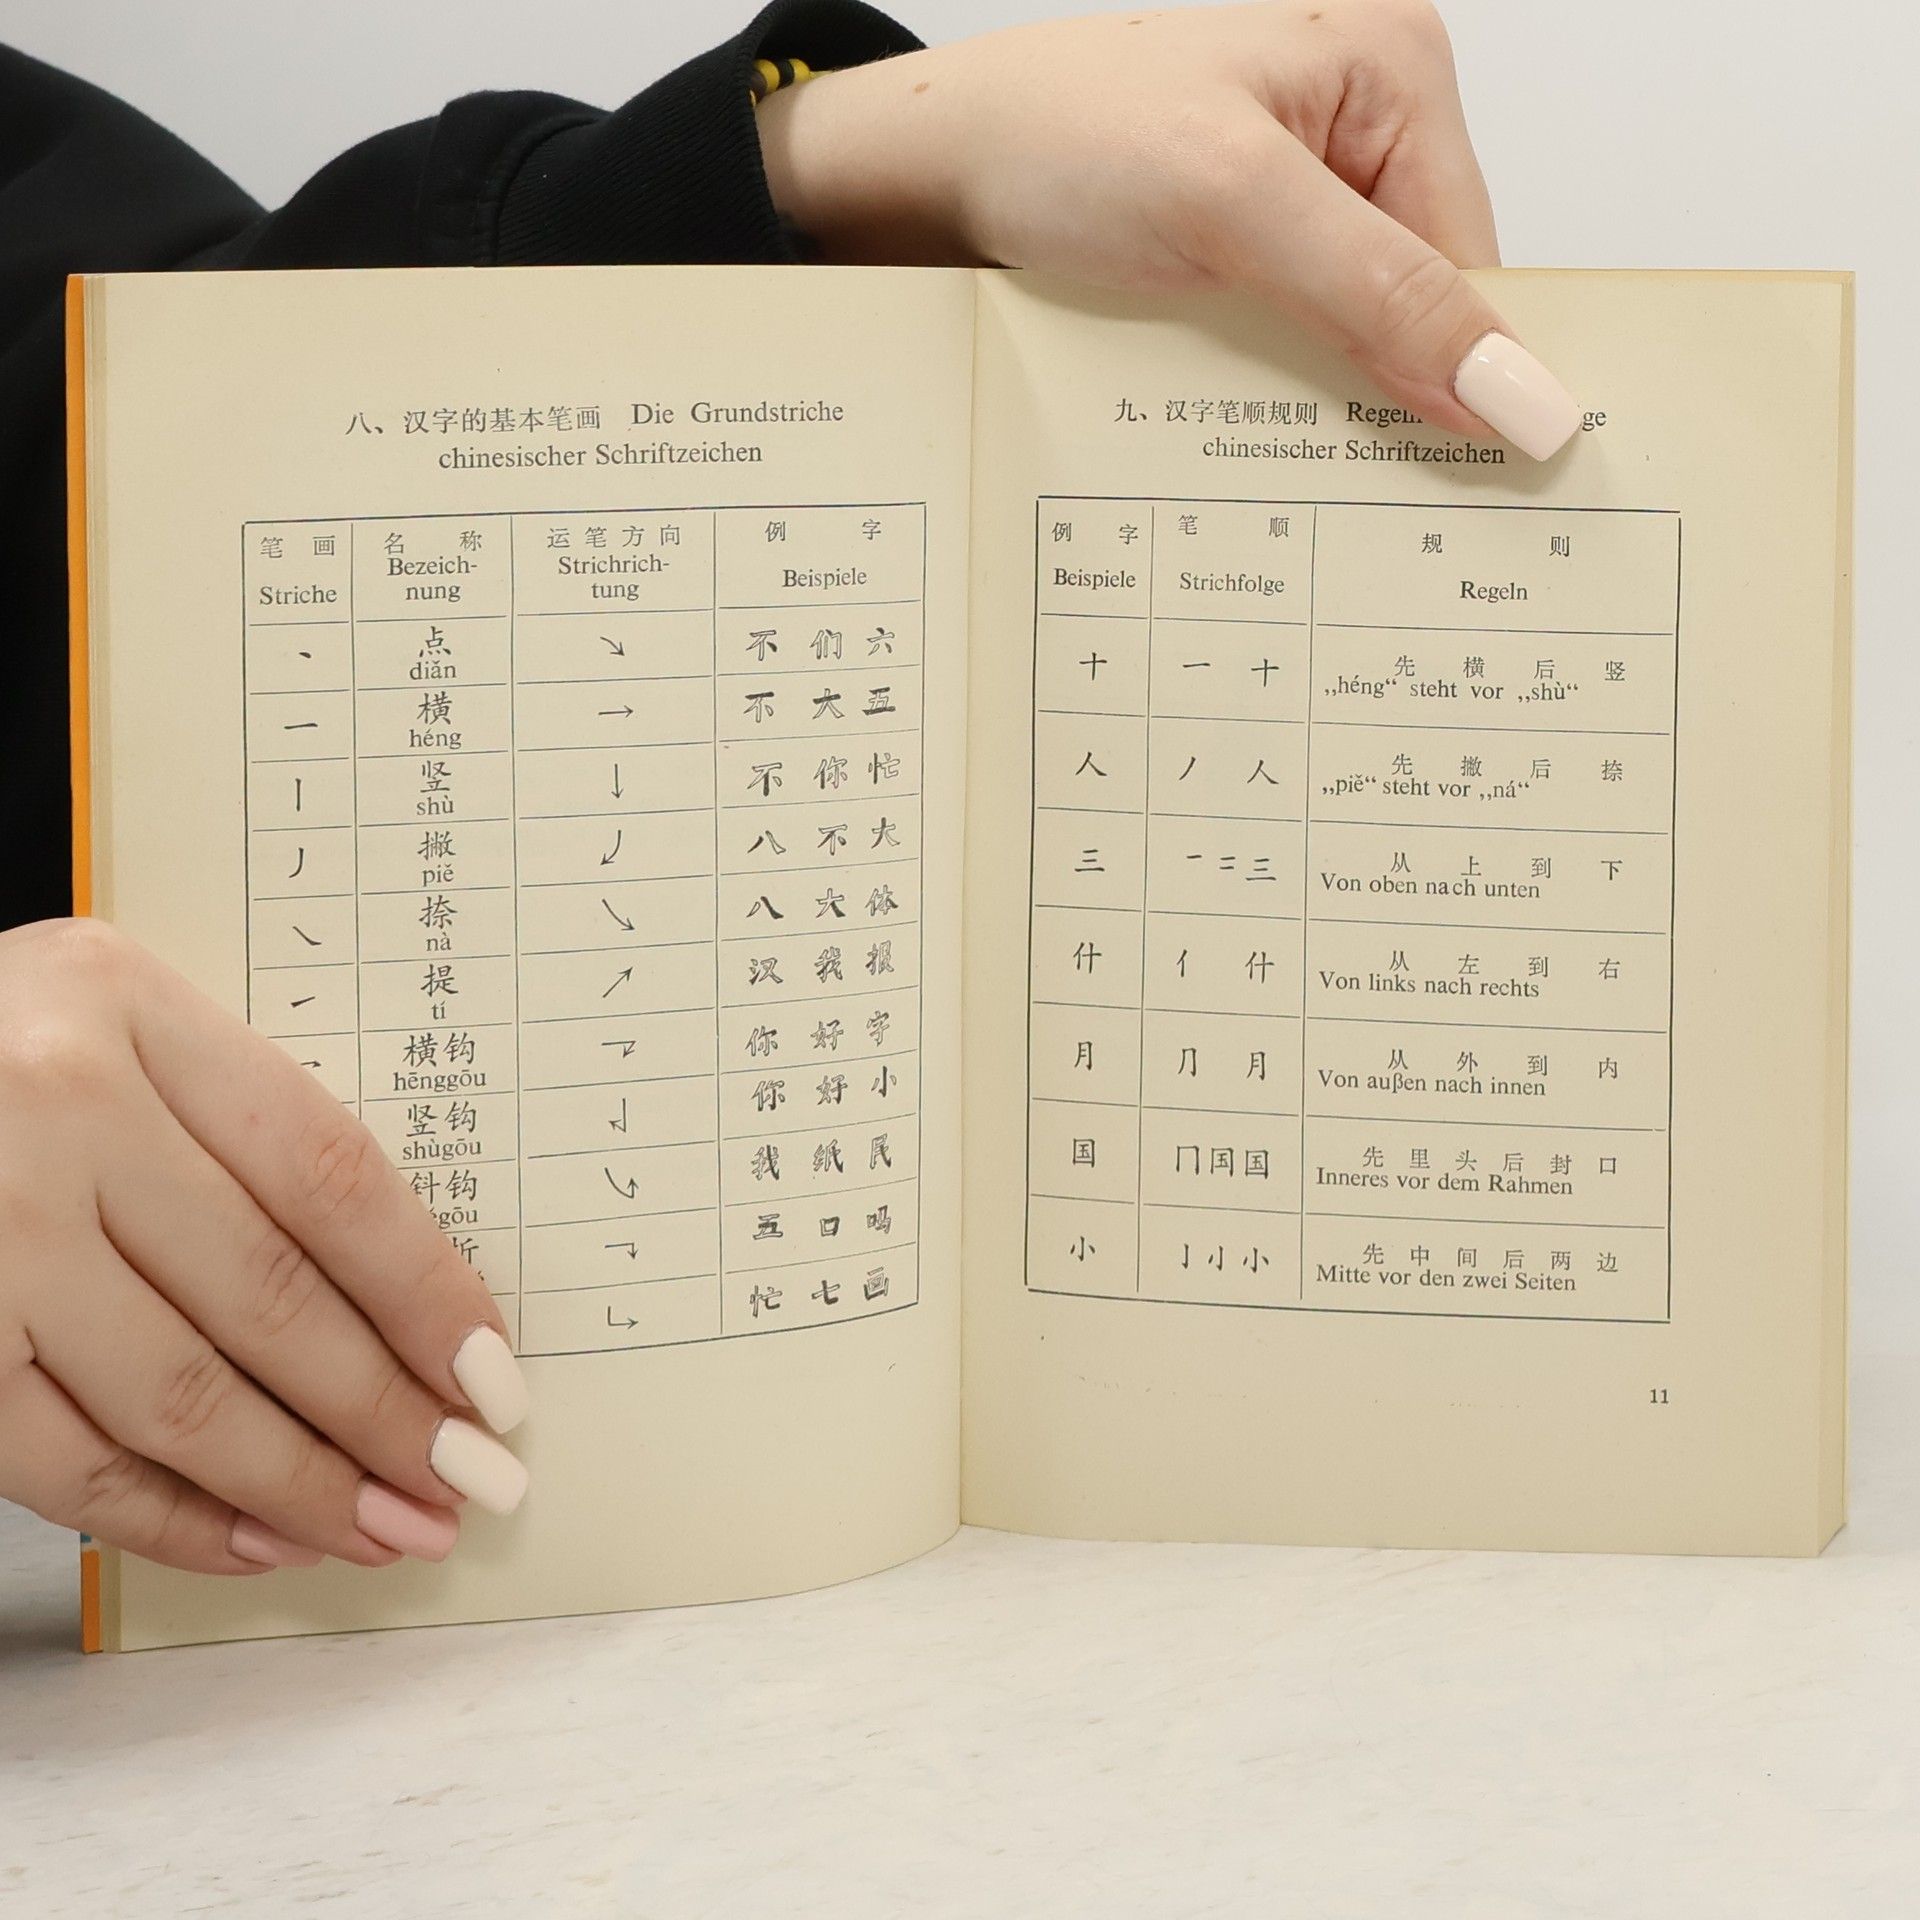 八、汉字的基本笔画 Die Grundstriche
chinesischer Schriftzeichen
笔画 名称 运笔方向 例字
Striche Bezeich-nung Strichrich-tung Beispiele
丶 点 diǎn ↘ 不 们 六
一 横 héng → 不 大 五
丨 竖 shù ↓ 不 你 忙
丿 撇 piě ↙ 八 不 大
㇏ 捺 nà ↘ 八 大 体
㇀ 提 tí ↗ 汉 我 报
横钩 hēnggōu 你 好 字
竖钩 shùgōu 你 好 小
斜钩 我 纸 民
五 口 吗
忙 七 画
九、汉字笔顺规则
chinesischer Schriftzeichen
例字 笔顺 规则
Beispiele Strichfolge Regeln
十 一 十 先横后竖
„héng“ steht vor „shù“
人 丿 人 先撇后捺
„piě“ steht vor „ná“
三 一 二 三 从上到下
Von oben nach unten
什 亻 什 从左到右
Von links nach rechts
月 ⺆ 月 从外到内
Von außen nach innen
国 冂 国 国 先里头后封口
Inneres vor dem Rahmen
小 亅 小 先中间后两边
Mitte vor den zwei Seiten
11